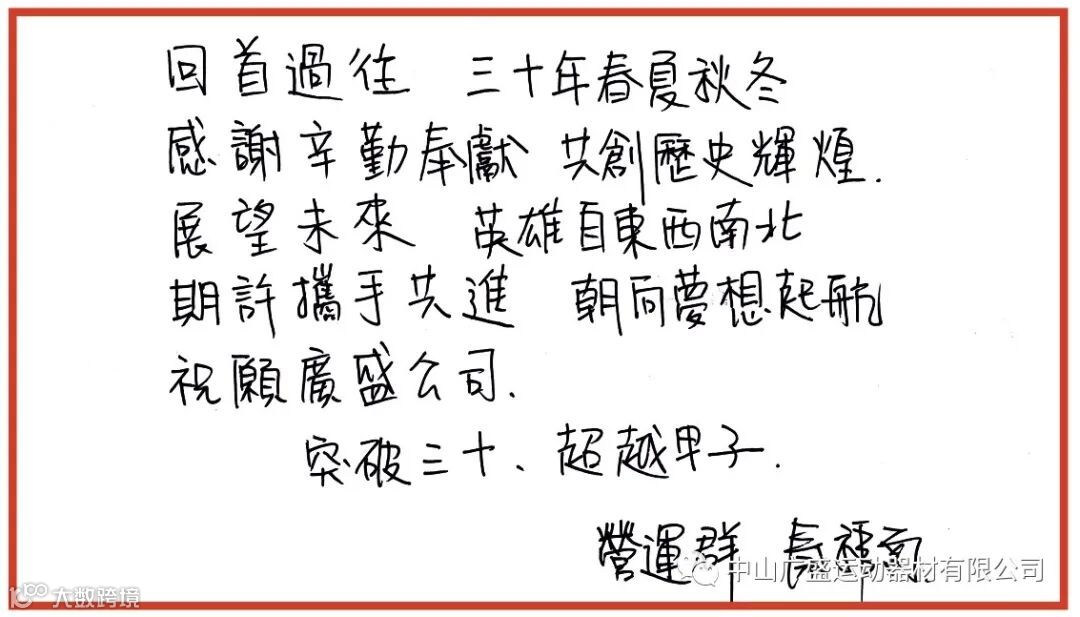 回首過往 三十年春夏秋冬
感謝辛勤奉獻 共創歷史輝煌.
展望未來 英雄自東西南北
期許攜手共進 朝向夢想起航
祝願廣盛公司.
突破三十、超越甲子.
營運群
中山广盛运动器材有限公司
大数跨境